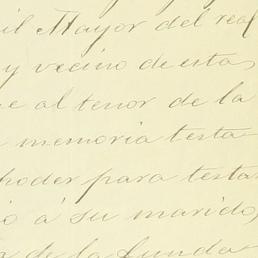 il Mayor del real
y vecino de esta
e al tenor de la
memoria testa
poder para testa
ó á su marido,
de la funda